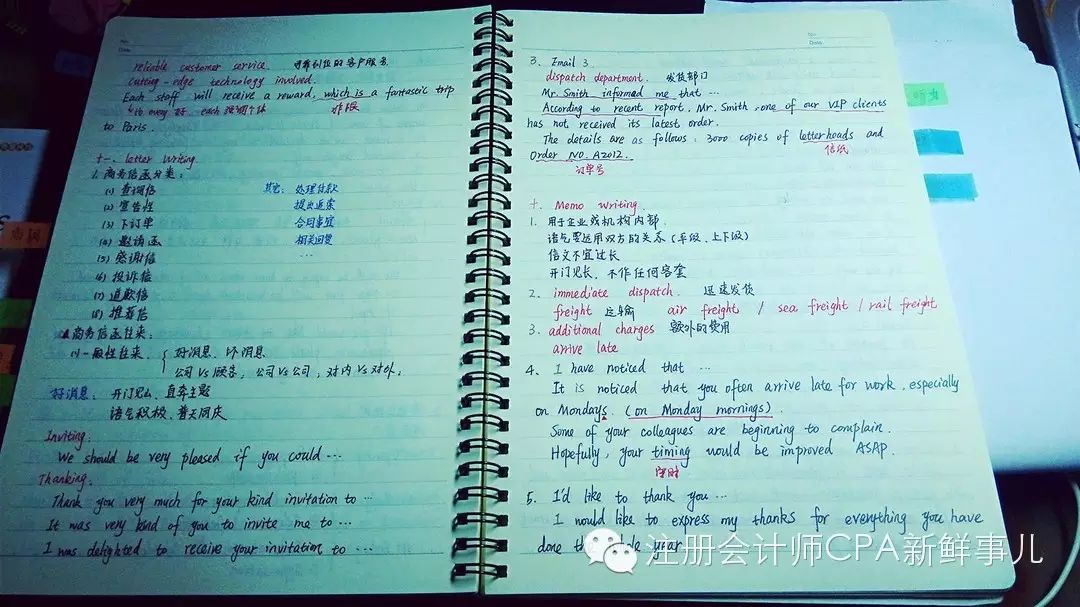 No.
Date.
reliable customer service. 可靠到位的客户服务
Cutting-edge technology involved.
Each staff will receive a reward, which is a fantastic trip
to Paris.
十一、letter writing.
1. 商务信函分类:
(1) 查询信 其它: 处理付款
(2) 警告性
(3) 下订单 合同事宜
(4) 邀请函 相关回赞
(5) 感谢信 ...
(6) 投诉信
(7) 道歉信
(8) 推荐信
▲商务信函往来:
(1) 一般性往来 { 好消息、坏消息
公司 VS 顾客, 公司 VS 公司; 对内 VS 对外,
好消息: 开门见山、直奔主题
语气积极、普天同庆
Inviting.
We should be very pleased if you could ...
Thanking.
Thank you very much for your kind invitation to ...
It was very kind of you to invite me to ...
I was delighted to receive your invitation to ...
No.
Date.
3. Email 3
dispatch department. 发货部门
Mr. Smith informed me that ...
According to recent report, Mr. Smith, one of our VIP clients
has not received its latest order.
The details are as follows: 3000 copies of letterheads and
信纸
Order NO. A2012.
订单号
十. Memo writing.
1. 用于企业或机构内部
语气要运用双方的关系(平级、上下级)
信文不宜过长
开门见山、不作任何客套
2. immediate dispatch. 迅速发货
freight 运输 air freight / sea freight / rail freight
3. additional charges 额外的费用
arrive late
4. I have noticed that ...
It is noticed that you often arrive late for work, especially
on Mondays. (on Monday mornings).
Some of your colleagues are beginning to complain.
Hopefully, your timing would be improved ASAP.
守时
5. I'd like to thank you ...
I would like to express my thanks for everything you have
done year
注册会计师CPA新鲜事儿